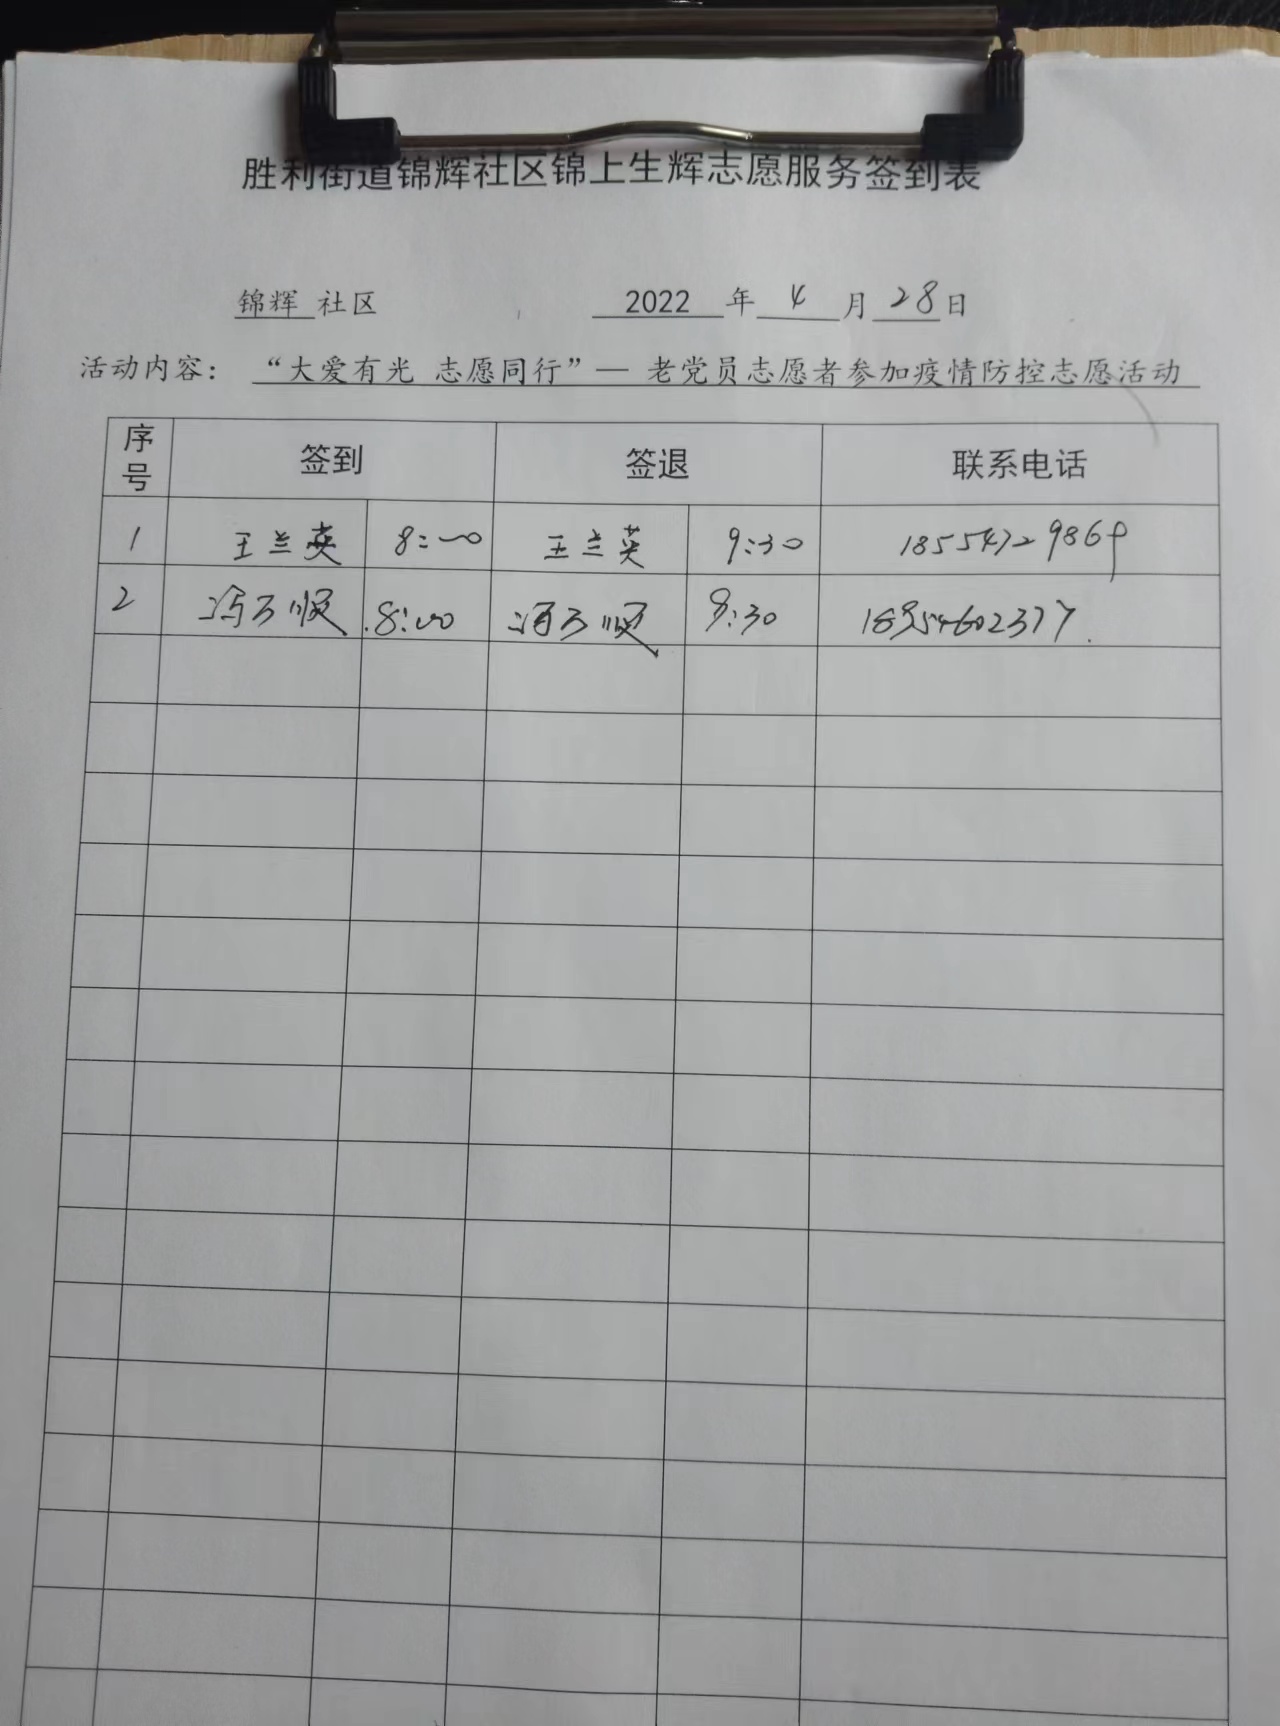 胜利街道锦辉社区锦上生辉志愿服务签到表
锦辉 社区 2022 年 4 月 28 日
活动内容： “大爱有光 志愿同行”— 老党员志愿者参加疫情防控志愿活动
序号 签到 签退 联系电话
1 王兰英 8:00 王兰英 9:30
2 冯万顺 8:00 冯万顺 9:30